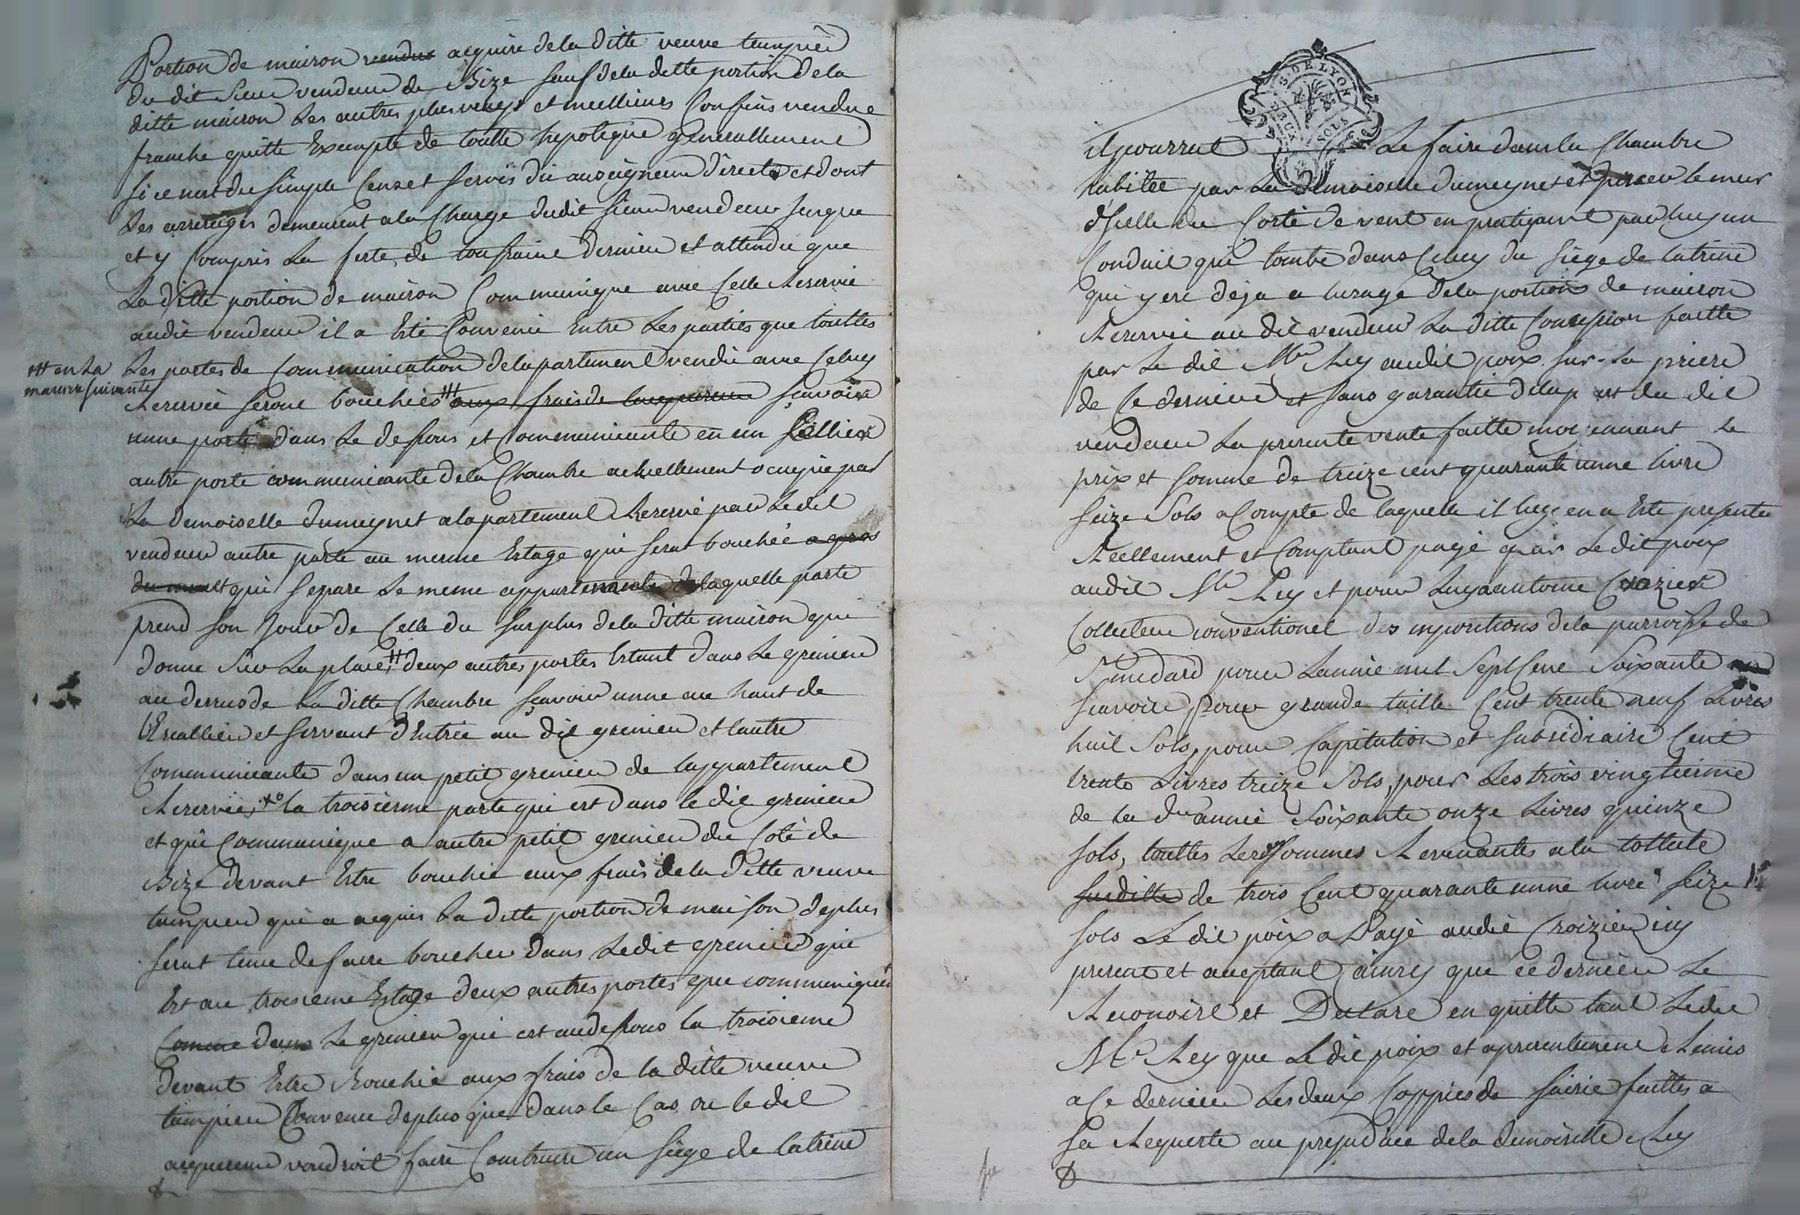 Portion de maison vendue acquire de la ditte veuve tampier
du dit sieur vendeur de Bize sauf de la ditte portion de la
ditte maison les autres plus vrays et meilleurs Confins vendue
franche quitte Exempte de toutte hypoteque generallement
si ce n'est du simple Cens et servis du au seigneur direct et dont
les arrerages demeurent a la Charge dudit sieur vendeur jusque
et y Compris la feste de toussaint dernier et attendu que
la ditte portion de maison Communique avec Celle Reservée
audit vendeur il a Esté Convenu Entre les parties que touttes
les portes de Communication de lapartement vendu avec Celuy
Reservée seront bouchées aux frais de lacquereur sçavoir
++ en la
maniere suivante
unne porte dans le dessous et Communicante en un Sellier
autre porte communicante de la Chambre actuellement ocupée par
la demoiselle dumeynet a lapartement Reservé par le dit
vendeur autre porte au meme Estage qui sera bouchée a gros
du murs qui separe le meme appartement laquelle porte
prend son Jour de Celle du surplus de la ditte maison qui
donne sur la place deux autres portes Estant dans le grenier
au dessus de la ditte Chambre sçavoir unne au haut de
l'Escallier et servant d'Entrée au dit grenier et lautre
Communicante dans un petit grenier de lappartement
Reservée, la troisieme porte qui est dans le dit grenier
et qui Communique a autre petit grenier du Coté de
Bize devant Estre bouchée aux frais de la ditte veuve
tampier qui a acquis la ditte portion de maison deplus
sera tenue de faire boucher dans le dit grenier qui
Est au troisieme Estage deux autres portes que communiquent
Comme dans le grenier qui est au dessous la troisieme
devant Estre Bouchée aux frais de la ditte veuve
tampier Convenu deplus que dans le Cas ou le dit
acquereur voudroit faire Construire un siege de latrine
S. DE LYON
DEUX SOLS
il pourrat le faire dans la Chambre
habitée par la demoiselle dumeynet et percer le mur
d'icelle du Costé de vent en pratiquant par luy un
Conduit qui tombe dans Celuy du siege de latrine
qui y est déja a lusage de la portion de maison
Reservée au dit vendeur la ditte Concession faitte
par le dit Mr Rey audit poix sur la priere
de Ce dernier et sans garantie de la part du dit
vendeur la presente vente faitte moienant le
prix et somme de treize cent quarante unne livre
seize sols a Compte de laquelle il luy en a Esté presente
Reellement et Comptant payé par le dit poix
audit Mr Rey et pour luy a antoine Croizier
Collecteur conventionel des impositions de la parroisse de
St medard pour Lannée mil sept Cent soixante
sçavoir pour grande taille Cent trente neuf Livres
huit sols, pour Capitation et subsidiaire Cent
trente Livres treize sols, pour les trois vingtieme
de la dte année soixante onze livres quinze
sols, touttes lesd sommes Revenantes a la tottale
susditte de trois Cent quarante unne livre seize
sols le dit poix a Payé audit Croizier icy
present et acceptant ainsy que ce dernier le
Reconoist et Declare en quitte tant ledit
Mr Rey que le dit poix et a presentement Remis
a Ce dernier les deux Coppies de saisie faittes a
sa Requeste au prejudice de la demoiselle Rey